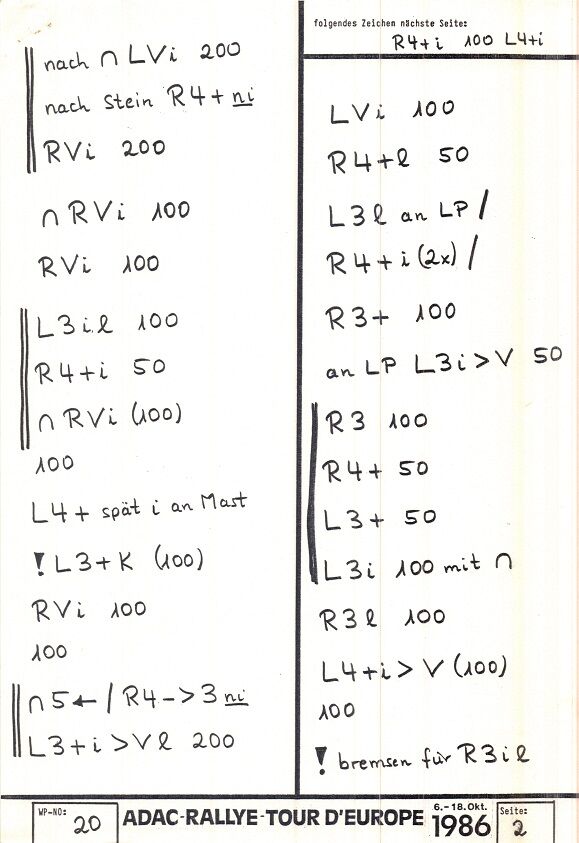 nach ∩ LVi 200
nach Stein R4+ ni
RVi 200
∩ RVi 100
RVi 100
L3il 100
R4+i 50
∩ RVi (100)
100
L4+ spät i an Mast
! L3+K (100)
RVi 100
100
∩5← / R4->3 ni
L3+i>Vl 200
folgendes Zeichen nächste Seite:
R4+i 100 L4+i
LVi 100
R4+l 50
L3l an LP /
R4+i (2x) /
R3+ 100
an LP L3i>V 50
R3 100
R4+ 50
L3+ 50
L3i 100 mit ∩
R3l 100
L4+i>V (100)
100
! bremsen für R3il
WP-NO: 20
ADAC-RALLYE-TOUR D'EUROPE
6.-18.Okt.
1986
Seite: 2